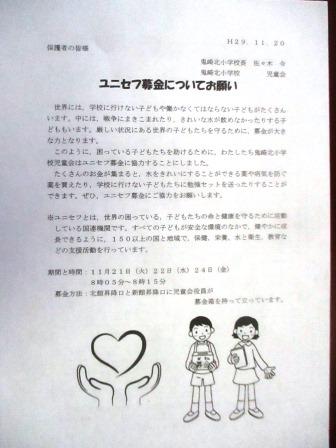 保護者の皆様
H29.11.20
鬼崎北小学校長 佐々木 令
鬼崎北小学校 児童会
ユニセフ募金についてお願い
世界には、学校に行けない子どもや働かなくてはならない子どもがたくさん
います。中には、戦争にまきこまれたり、きれいな水が飲めなかったりする子
どももいます。厳しい状況にある世界の子どもたちを守るために、募金が大き
な力となります。
このように、困っている子どもたちを助けるために、わたしたち鬼崎北小学
校児童会はユニセフ募金に協力することにしました。
たくさんのお金が集まると、水をきれいにすることができる薬や病気を防ぐ
薬を買えたり、学校に行けない子どもたちに勉強セットを送ったりすることが
できます。ぜひ、ユニセフ募金にご協力をお願いします。
※ユニセフとは、世界の困っている、子どもたちの命と健康を守るために活動
している国連機関です。すべての子どもが安全な環境のなかで、健やかに成
長できるように、150以上の国と地域で、保健、栄養、水と衛生、教育など
の支援活動を行っています。
期間と時間：11月21日（火）22日（水）24日（金）
8時05分～8時15分
募金方法：北館昇降口と新館昇降口に児童会役員が
募金箱を持って立っています。